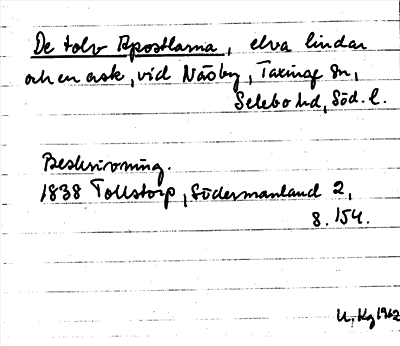 De tolv Apostlarna, elva lindar
och en ask, vid Näsby, Taxinge sn,
Selebo hd, Söd. l.
Beskrivning.
1838 Tollstorp, Södermanland 2,
s. 154.
U. Kg 1962